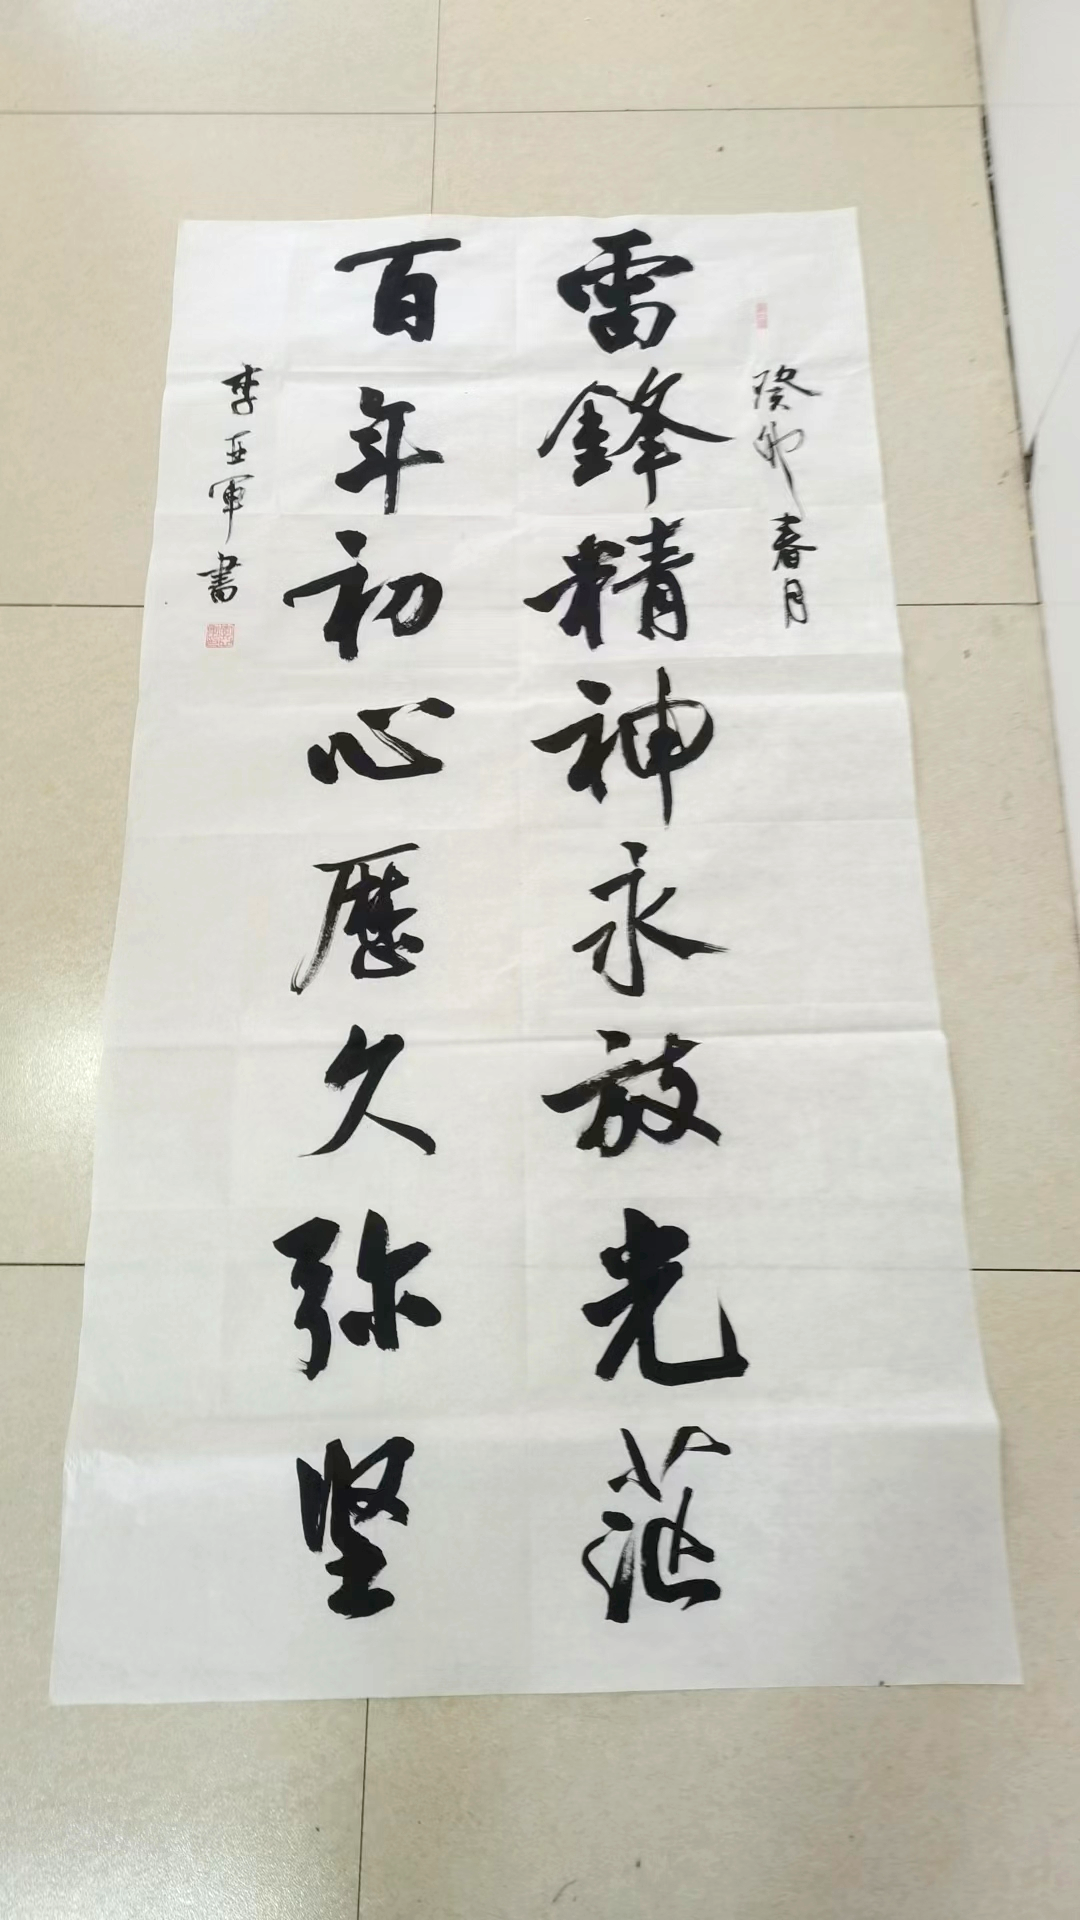 癸卯春月
雷鋒精神永放光茫
百年初心歷久弥坚
李亚軍書